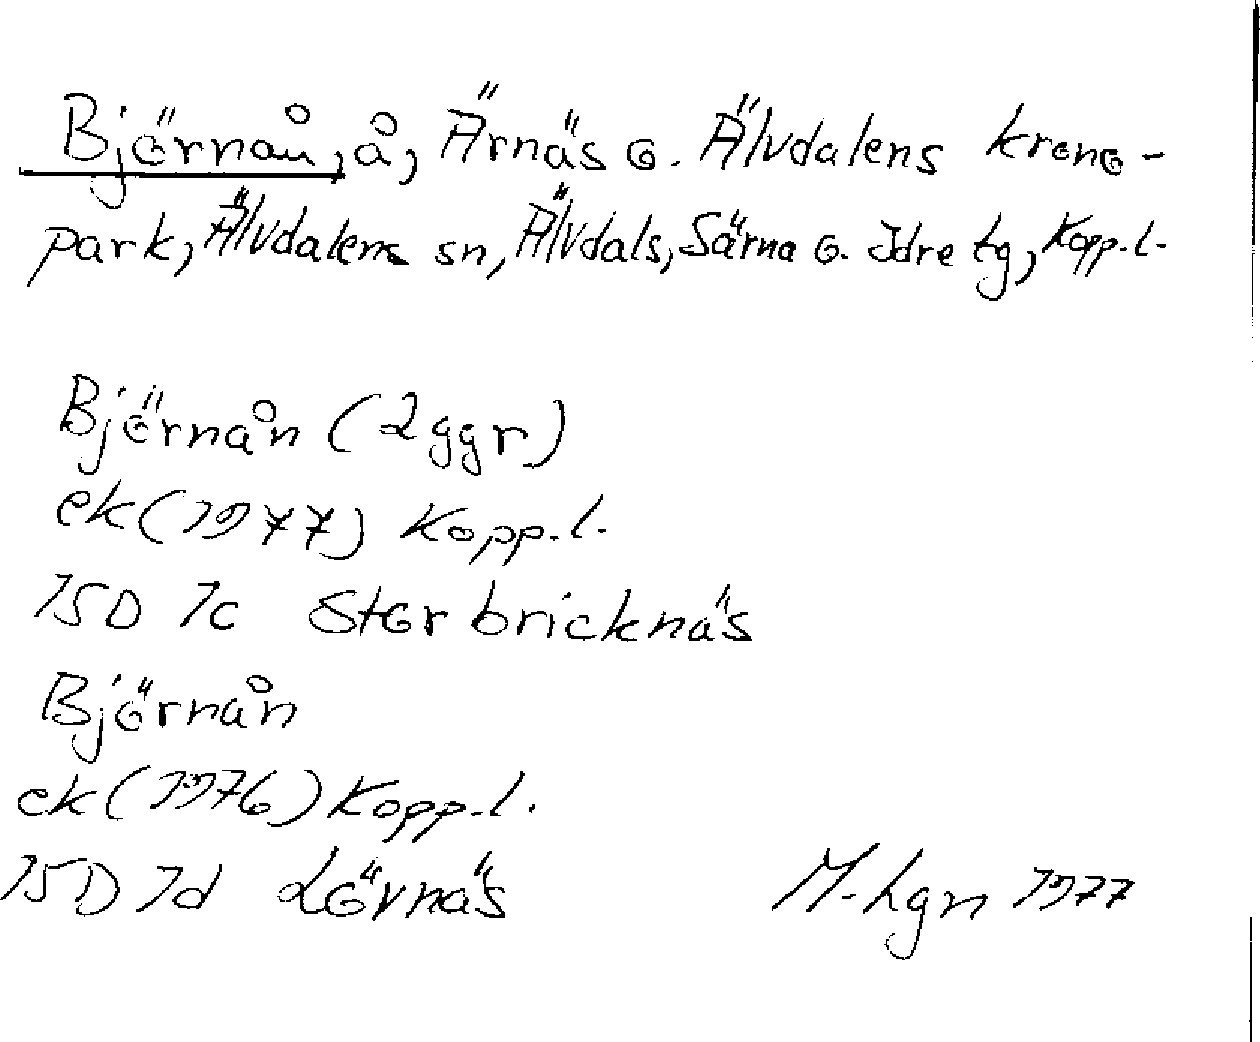 Björnån, å, Ärnäs o. Älvdalens krono-
park, Älvdalens sn, Älvdals, Särna o. Idre tg, Kopp. l.
Björnån (2 ggr)
ek (1977) Kopp. l.
15D 1c Storbricknäs
Björnån
ek (1976) Kopp. l.
15D 1d Lövnäs
M. Lgn 1977